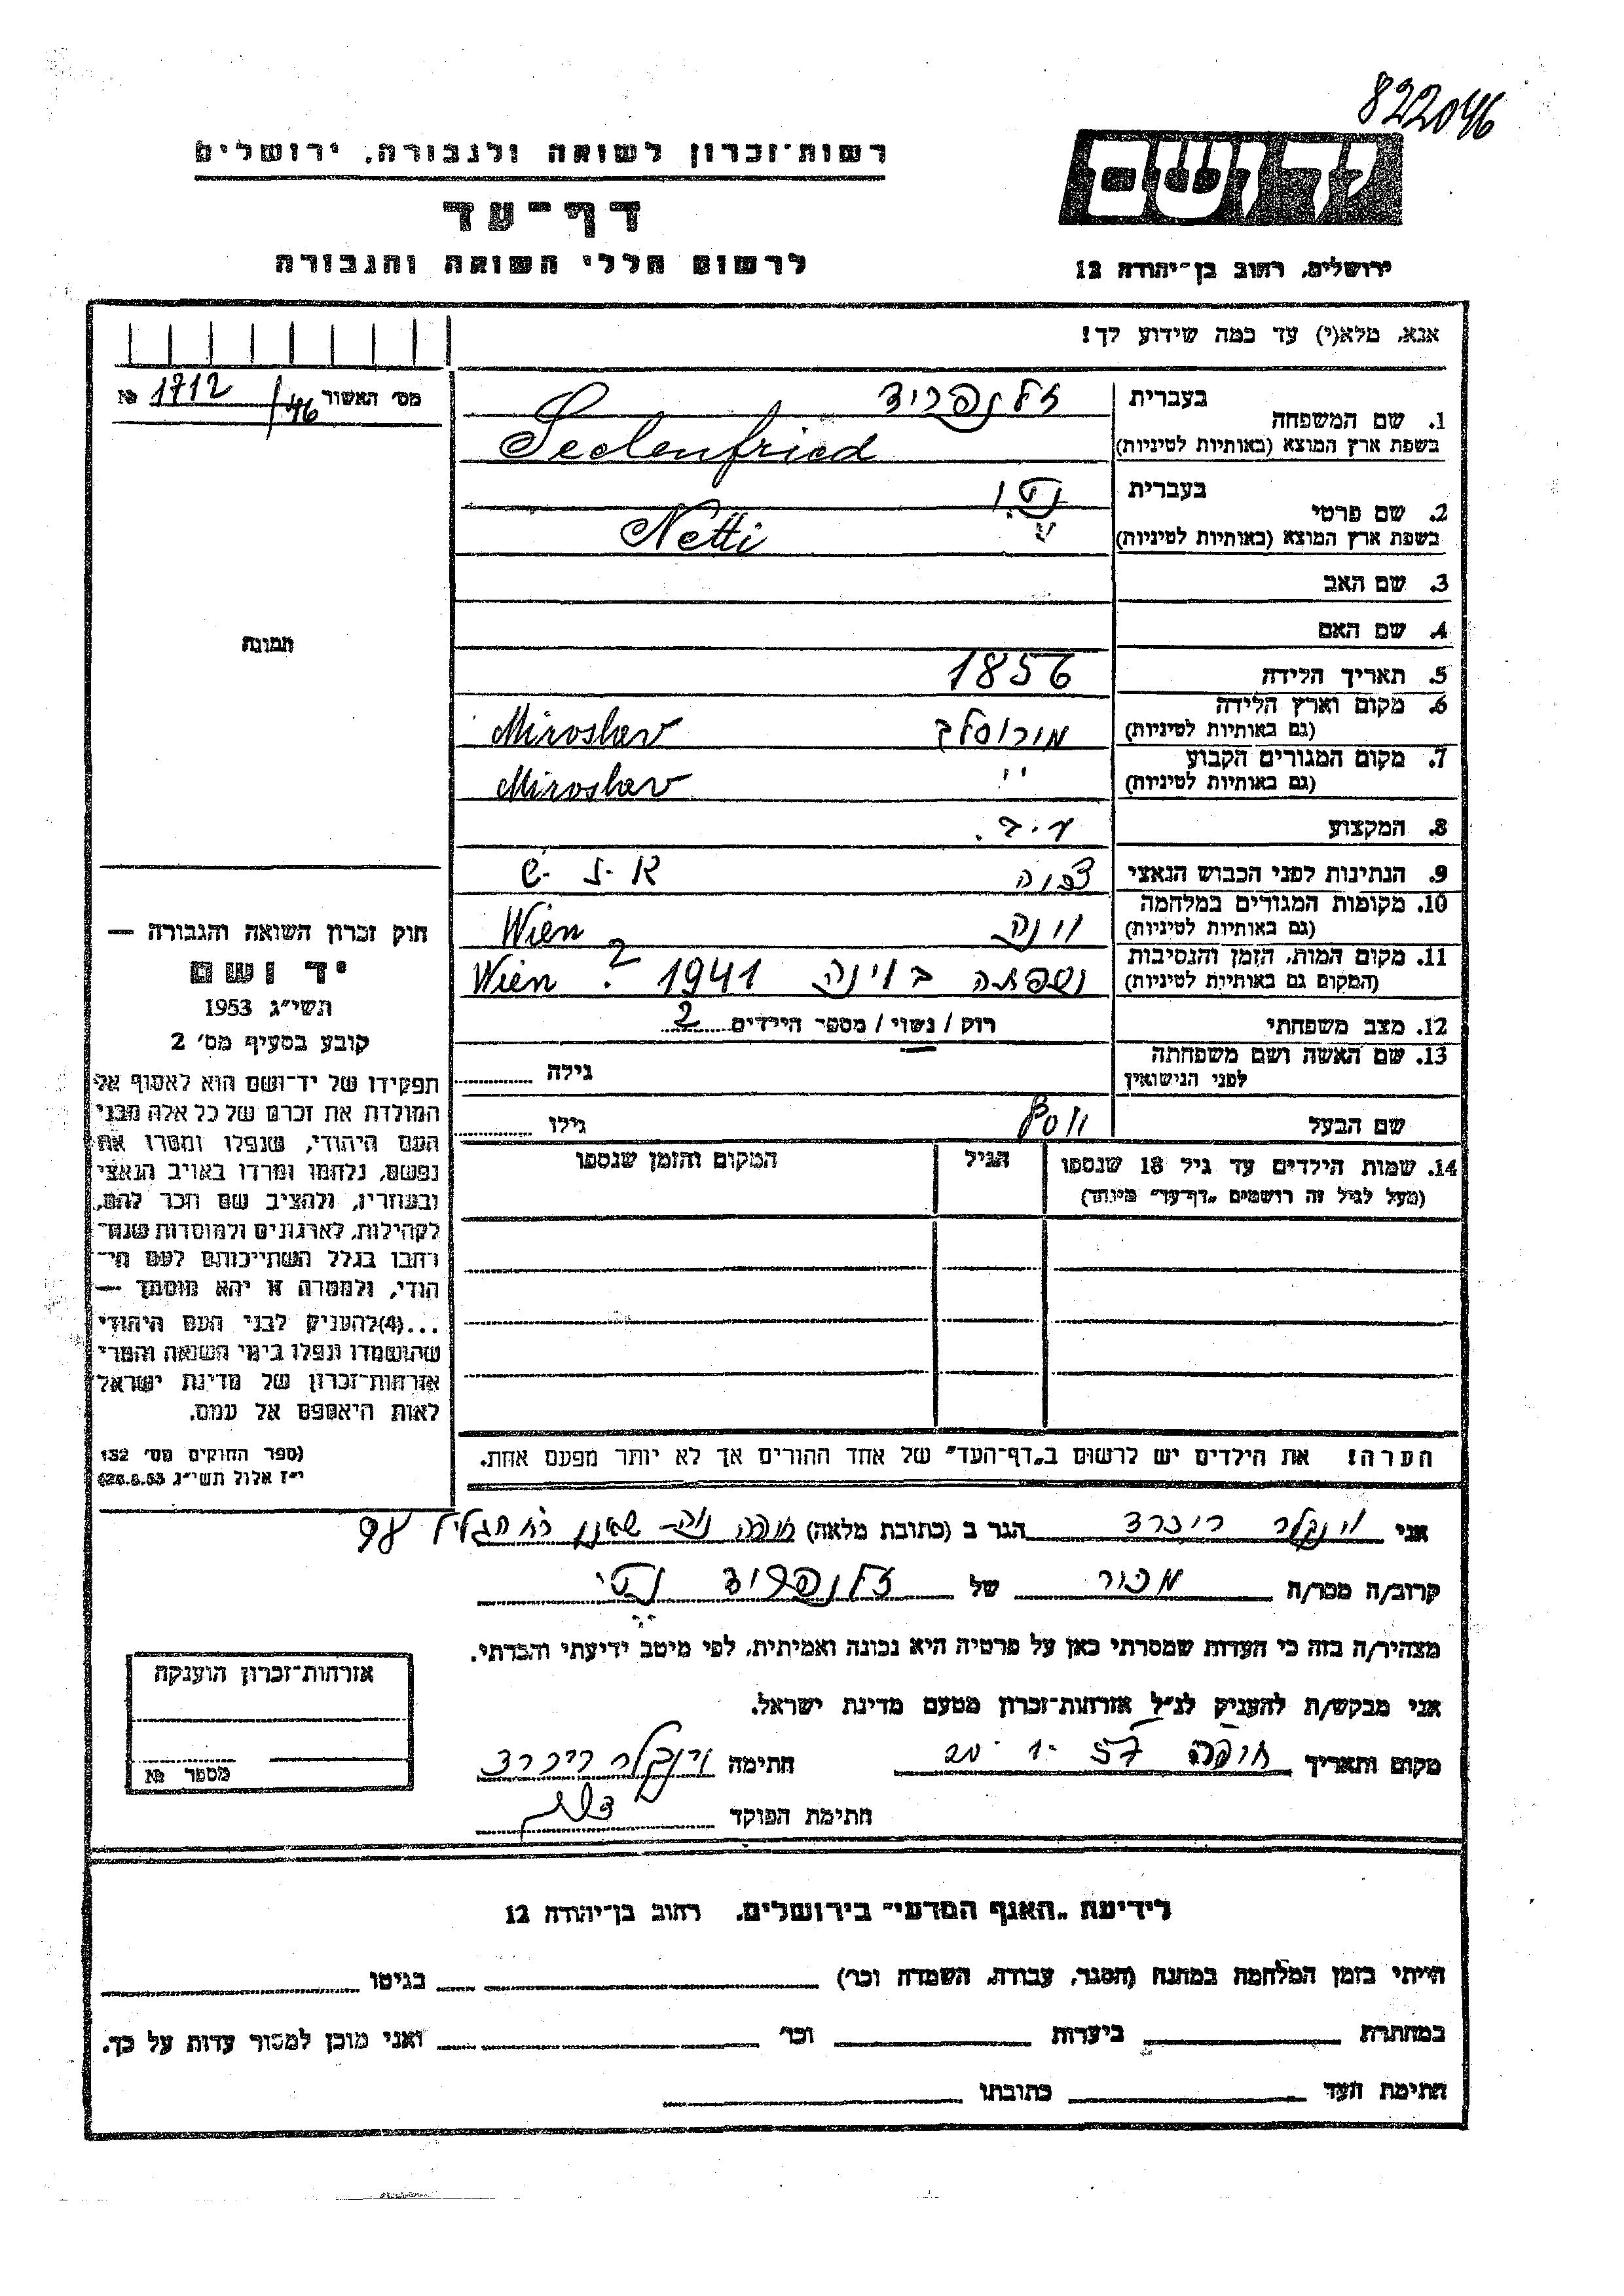 822046
רשות-זכרון לשואה ולגבורה, ירושלים
יד ושם
דף-עד
לרשום חללי השואה והגבורה
ירושלים, רחוב בן-יהודה 12
אנא, מלא(י) עד כמה שידוע לך!
מס׳ האשור 1712/46 №
1. שם המשפחה
בעברית זלנפריד
בשפת ארץ המוצא (באותיות לטיניות) Seelenfried
2. שם פרטי
בעברית נטי
בשפת ארץ המוצא (באותיות לטיניות) Netti
3. שם האב
4. שם האם
תמונה
5. תאריך הלידה 1856
6. מקום וארץ הלידה
(גם באותיות לטיניות) מירוסלב Miroslav
7. מקום המגורים הקבוע
(גם באותיות לטיניות) " Miroslav
8. המקצוע ע.ב.
9. הנתינות לפני הכבוש הנאצי
10. מקומות המגורים במלחמה
(גם באותיות לטיניות) וינה Wien
11. מקום המות, הזמן והנסיבות
(המקום גם באותיות לטיניות) נספתה בוינה 1941 ? Wien
12. מצב משפחתי רוק / נשוי / מספר הילדים 2
13. שם האשה ושם משפחתה
לפני הנישואין גילה
שם הבעל גילו
14. שמות הילדים עד גיל 18 שנספו הגיל המקום והזמן שנספו
(מעל לגיל זה רושמים "דף-עד" מיוחד)
הערה! את הילדים יש לרשום ב"דף-העד" של אחד ההורים אך לא יותר מפעם אחת.
חוק זכרון השואה והגבורה —
יד ושם
תשי"ג 1953
קובע בסעיף מס׳ 2
תפקידו של יד-ושם הוא לאסוף אל
המולדת את זכרם של כל אלה מבני
העם היהודי, שנפלו ומסרו את
נפשם, נלחמו ומרדו באויב הנאצי
ובעוזריו, ולהציב שם וזכר להם,
לקהילות, לארגונים ולמוסדות שנח-
רחבו בגלל השתייכותם לעם הי-
הודי, ולמטרה זו יהא מוסמך —
...(4)להעניק לבני העם היהודי
שהושמדו ונפלו בימי השואה והמרי
אזרחות-זכרון של מדינת ישראל
לאות היאספם אל עמם.
(ספר החוקים מס׳ 132
י"ז אלול תשי"ג 28.8.53)
אני וינקלר ריכרד הגר ב (כתובת מלאה) חיפה נוה-שאנן רח הגליל 98
קרוב/ה מכר/ה של זלנפריד נטי
מצהיר/ה בזה כי העדות שמסרתי כאן על פרטיה היא נכונה ואמיתית, לפי מיטב ידיעתי והכרתי.
אני מבקש/ת להעניק לנ"ל אזרחות-זכרון מטעם מדינת ישראל.
מקום ותאריך חיפה 20.1.57 חתימה וינקלר ריכרד
חתימת הפוקד
אזרחות-זכרון הוענקה
מספר №
לידיעת "האגף המדעי" בירושלים, רחוב בן-יהודה 12
הייתי בזמן המלחמה במחנה (הסגר, עבודה, השמדה וכו׳) בגיטו
במחתרת ביערות וכו׳ ואני מוכן למסור עדות על כך.
חתימת העד כתובתו